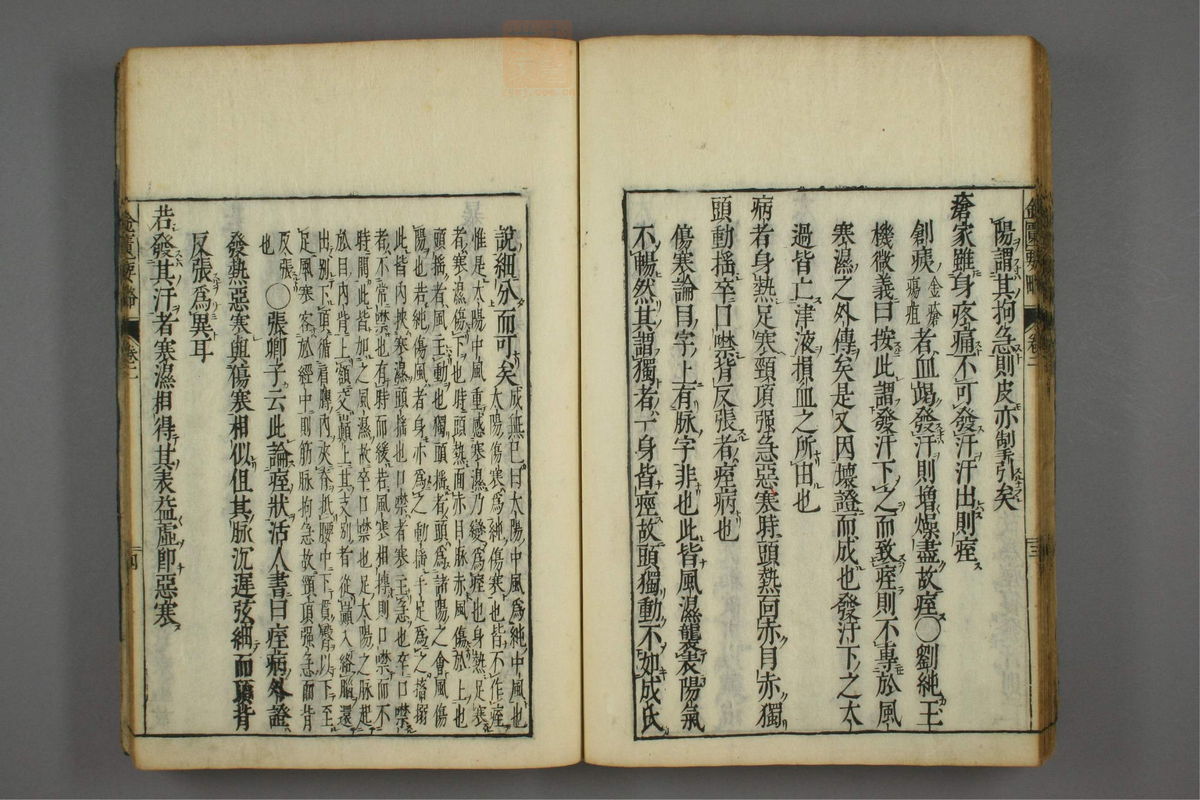 陽謂其拘急則皮亦掣引矣
瘡家雖身疼痛不可發汗汗出則痙
創痍金瘡瘍疽者血竭發汗則增燥盡故痙〇劉純玉
機微義曰按此謂發汗下之而致痙則不專於風
寒濕之外傳矣是又因壞證而成也發汗下之太
過皆亡津液損血之所由也
病者身熱足寒頸項强急惡寒時頭熱面赤目赤獨
頭動搖卒口噤背反張者痙病也
傷寒論目字上有脉字非也此皆風濕襲表陽氣
不暢然其謂獨者一身皆痙故頭獨動不如成氏
金匱要略
卷二
三
說細分而可矣成無已曰太陽中風爲純中風也太陽傷寒爲純傷寒也皆不作痙
惟是太陽中風重感寒濕乃變爲痙也身熱足寒
者寒濕傷下也時頭熱面赤目脉赤風傷於上也
頭搖者風主動也獨頭搖者頭爲諸陽之會風傷
陽也若純傷風者身亦爲之動搖手足爲之搐搦
此皆內挾寒濕頭搖也口噤者寒主急也卒口噤
者不常噤也有時而緩若風寒相摶則口噤而不
時開此皆加之風濕故卒口噤也足太陽之脉起
於目內眥上額交巔上其支別者從巔入絡腦還
出別下項循肩膊內夾脊抵腰中下貫臀以下至
足風寒客於經中則筋脉拘急故頸項强急而背
反張也〇張卿子云此論痙狀活人書曰痙病外證
發熱惡寒與傷寒相似但其脉沉遲弦細而項背
反張爲異耳
若發其汗者寒濕相得其表益虛卽惡寒
金匱要略
卷二
四